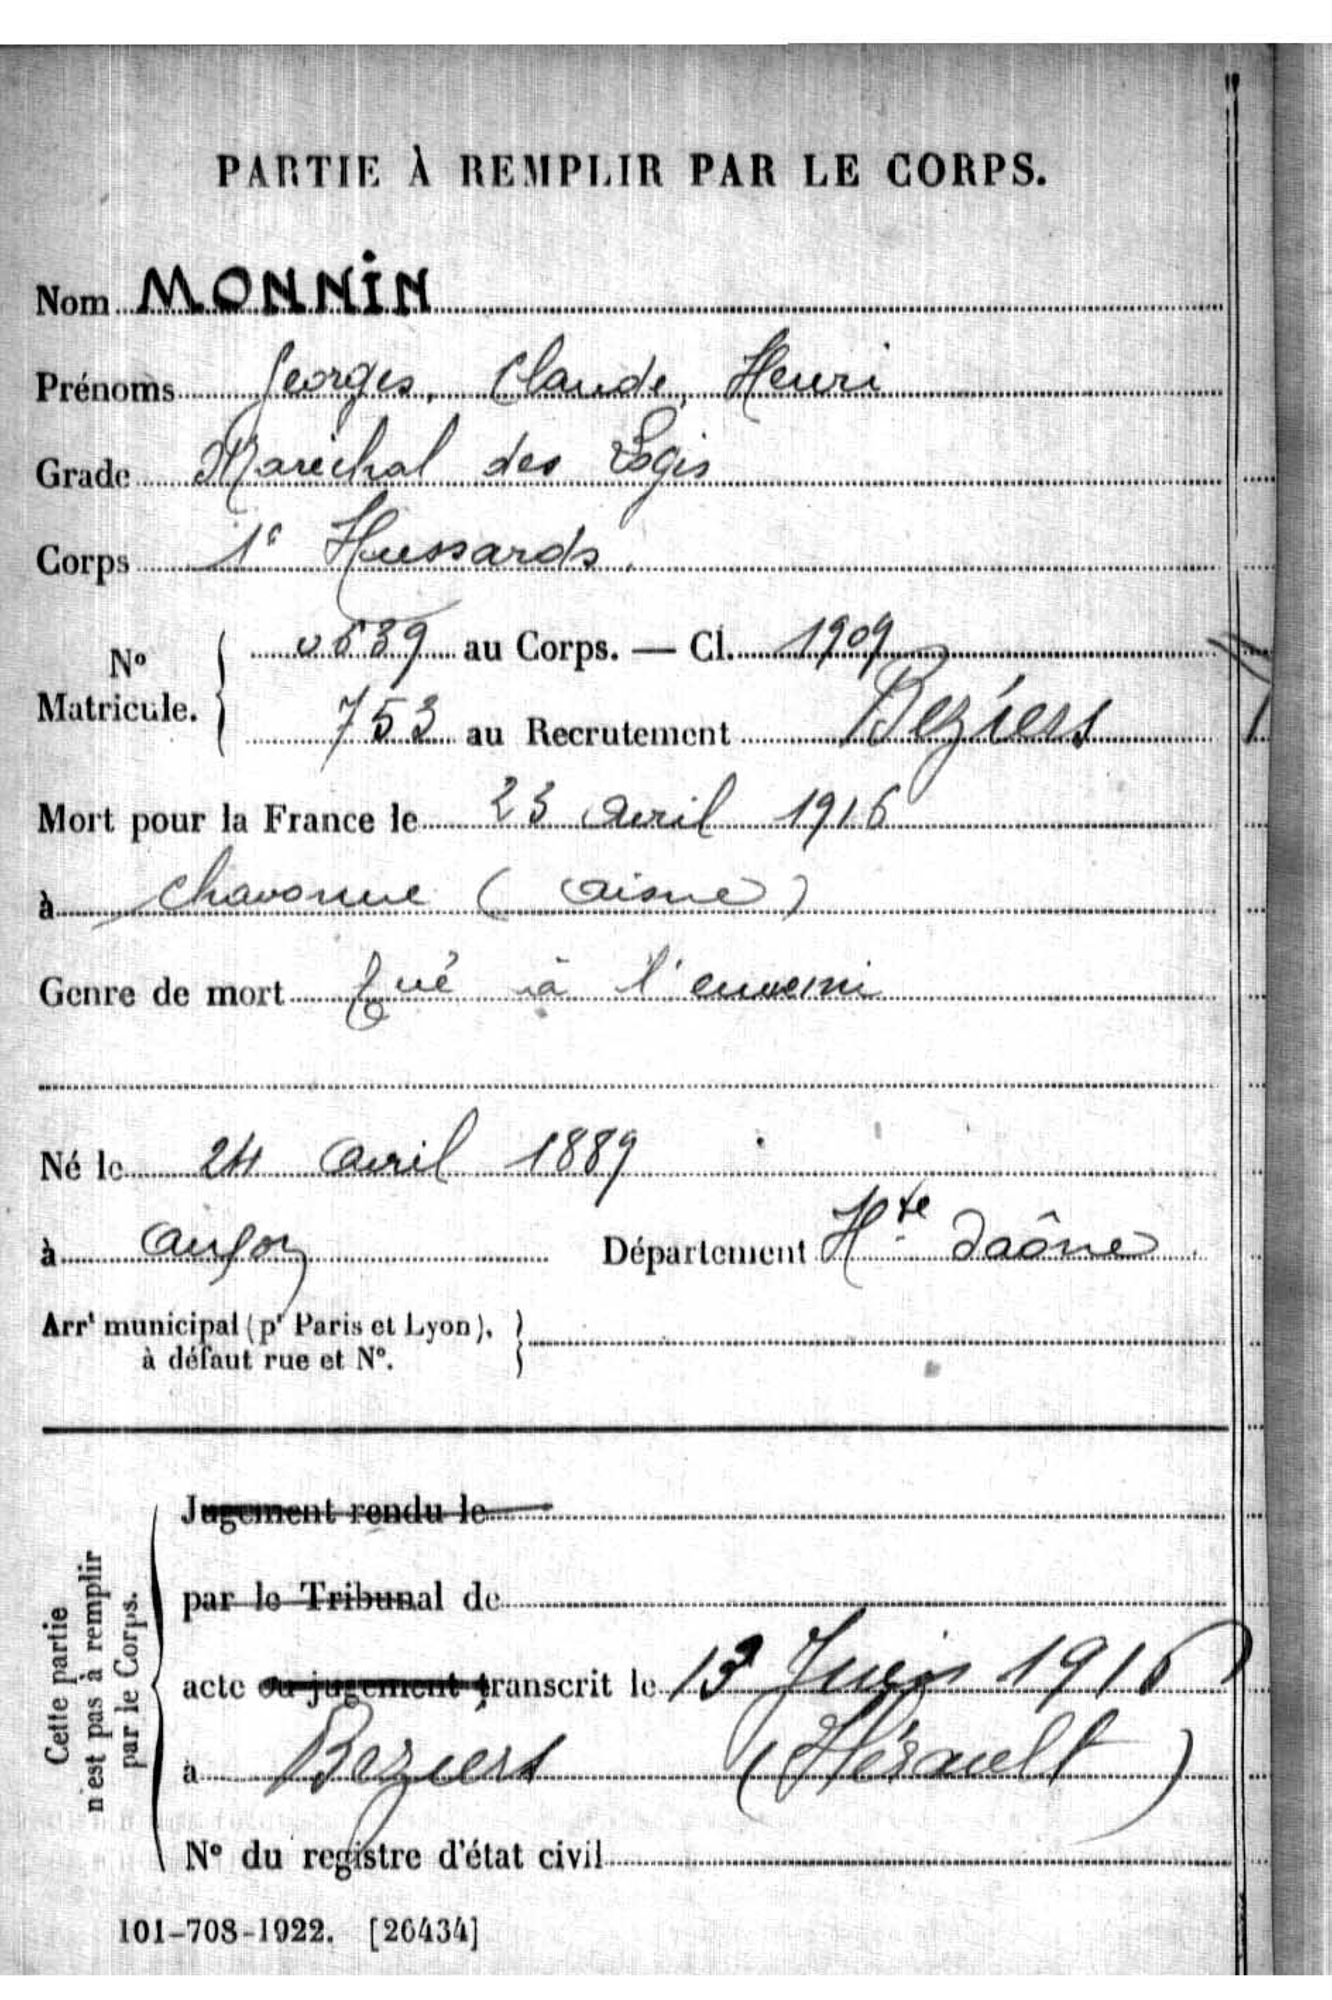 PARTIE À REMPLIR PAR LE CORPS.
Nom MONNIN
Prénoms Georges, Claude, Henri
Grade Maréchal des Logis
Corps 1e Hussards.
No Matricule. 0539 au Corps. — Cl. 1909
753 au Recrutement Beziers
Mort pour la France le 23 avril 1916
à Chavonne (aisne)
Genre de mort tué à l'ennemi
Né le 24 avril 1889
à Département Hte Saône
Arrt municipal (pr Paris et Lyon),
à défaut rue et No.
Cette partie
n'est pas à remplir
par le Corps.
Jugement rendu le
par le Tribunal de
acte ou jugement transcrit le 13 Juin 1916
à Beziers (Hérault)
No du registre d'état civil
101-708-1922. [26434]